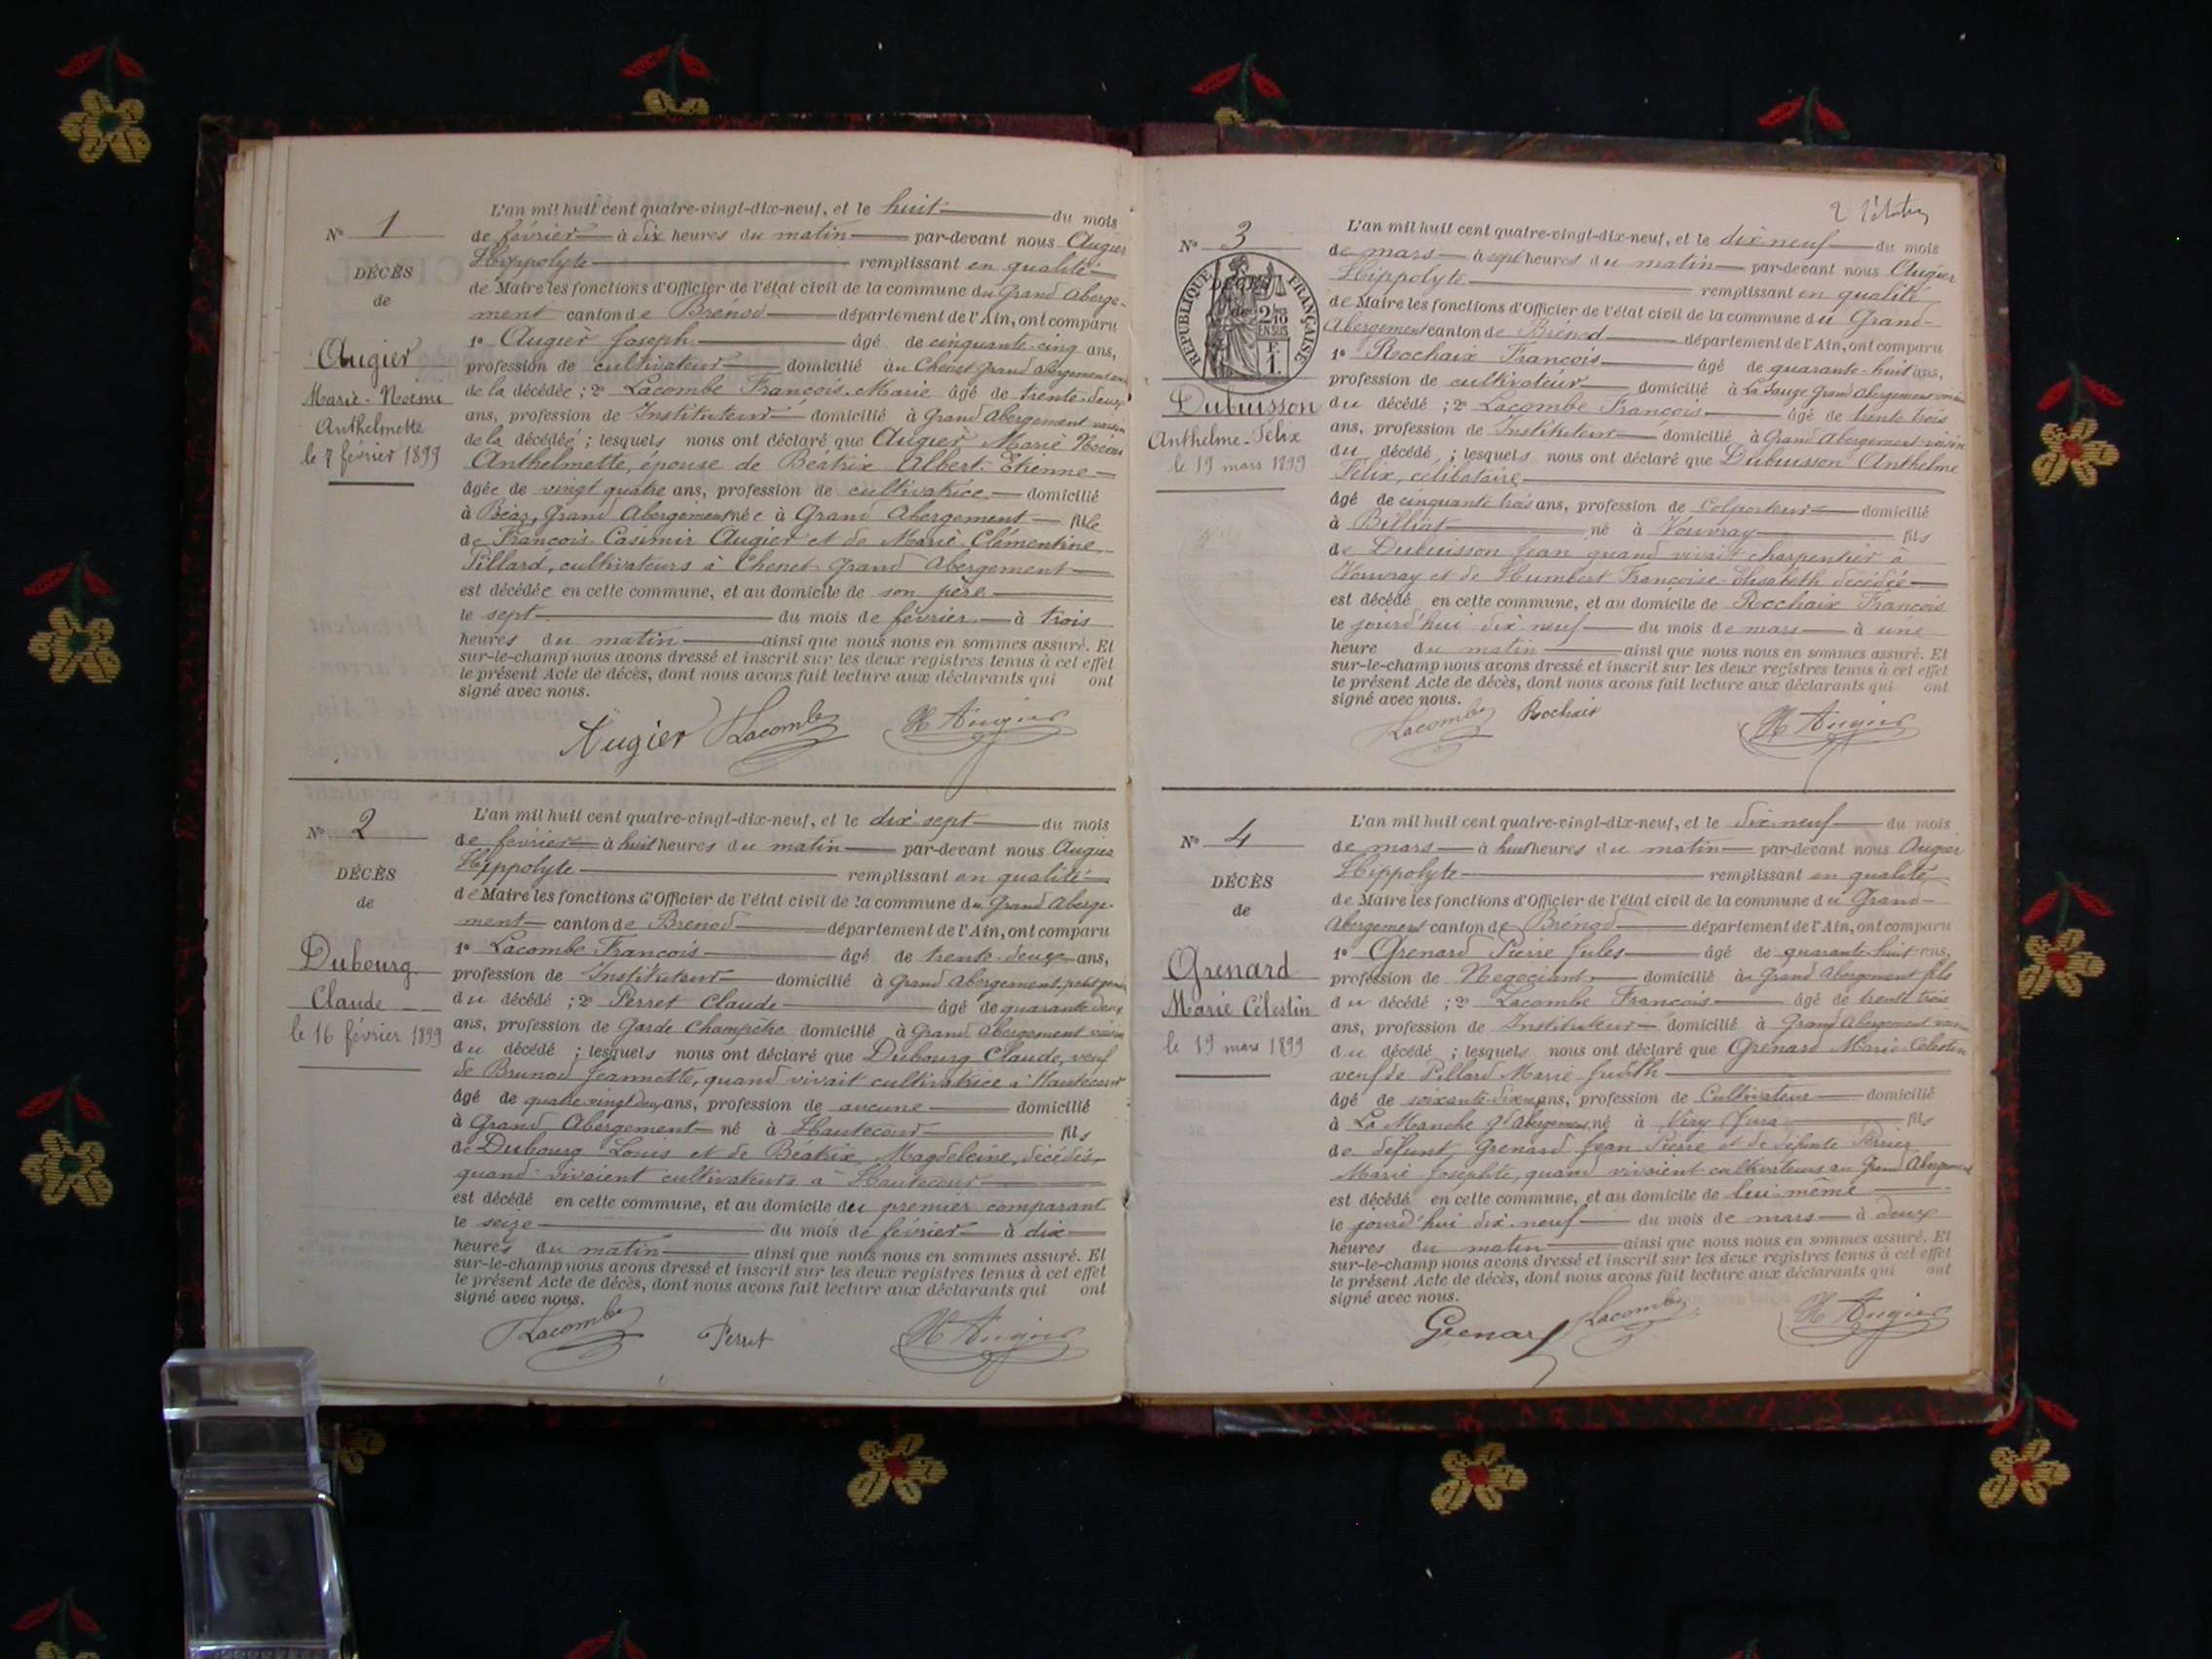 L'an mil huit cent quatre-vingt-dix-neuf, et le huit du mois
N° 1
de février à dix heures du matin par-devant nous Augier
Hippolyte remplissant en qualité
DÉCÈS
de Maire les fonctions d'Officier de l'état civil de la commune du Grand Aberge-
de
ment canton de Brénod département de l'Ain, ont comparu
1° Augier Joseph âgé de cinquante-cinq ans,
Augier
profession de cultivateur domicilié au Chenet Grand Abergement
Marie-Noémi
de la décédée ; 2° Lacombe François-Marie âgé de trente-deux
Anthelmette
ans, profession de Instituteur domicilié à Grand Abergement voisin
le 7 février 1899
de la décédée ; lesquels nous ont déclaré que Augier Marie Noémi
Anthelmette, épouse de Béatrix Albert-Etienne
âgée de vingt quatre ans, profession de cultivatrice domicilié
à Grand Abergement née à Grand Abergement fille
de François-Casimir Augier et de Marie-Clémentine
Pillard, cultivateurs à Chenet Grand Abergement
est décédée en cette commune, et au domicile de son père
le sept du mois de février à trois
heures du matin ainsi que nous nous en sommes assuré. Et
sur-le-champ nous avons dressé et inscrit sur les deux registres tenus à cet effet
le présent Acte de décès, dont nous avons fait lecture aux déclarants qui ont
signé avec nous.
Augier Lacombe H Augier
L'an mil huit cent quatre-vingt-dix-neuf, et le dix sept du mois
N° 2
de février à huit heures du matin par-devant nous Augier
Hippolyte remplissant en qualité
DÉCÈS
de Maire les fonctions d'Officier de l'état civil de la commune du Grand Aberge-
de
ment canton de Brenod département de l'Ain, ont comparu
1° Lacombe François âgé de trente-deux ans,
Dubourg
profession de Instituteur domicilié à Grand Abergement, petit gendre
Claude
du décédé ; 2° Perret Claude âgé de quarante deux
ans, profession de Garde Champêtre domicilié à Grand Abergement voisin
le 16 février 1899
du décédé ; lesquels nous ont déclaré que Dubourg Claude, veuf
de Brunod Jeannette, quand vivait cultivatrice à Hautecour
âgé de quatre-vingt deux ans, profession de aucune domicilié
à Grand Abergement né à Hautecour fils
de Dubourg Louis et de Béatrix Magdeleine, décédés,
quand vivaient cultivateurs à Hautecour
est décédé en cette commune, et au domicile du premier comparant
le seize du mois de février à dix
heures du matin ainsi que nous nous en sommes assuré. Et
sur-le-champ nous avons dressé et inscrit sur les deux registres tenus à cet effet
le présent Acte de décès, dont nous avons fait lecture aux déclarants qui ont
signé avec nous.
Lacombe Perret H Augier
2
L'an mil huit cent quatre-vingt-dix-neuf, et le dix neuf du mois
N° 3
de mars à sept heures du matin par-devant nous Augier
Hippolyte remplissant en qualité
RÉPUBLIQUE FRANÇAISE
DÉCÈS
de
2/10 EN SUS
F. 1.
de Maire les fonctions d'Officier de l'état civil de la commune du Grand-
Abergement canton de Brénod département de l'Ain, ont comparu
1° Rochaix François âgé de quarante-huit ans,
profession de cultivateur domicilié à La Sauge Grand Abergement voisin
Dubuisson
du décédé ; 2° Lacombe François âgé de trente trois
Anthelme-Félix
ans, profession de Instituteur domicilié à Grand Abergement voisin
le 19 mars 1899
du décédé ; lesquels nous ont déclaré que Dubuisson Anthelme
Félix, célibataire
âgé de cinquante trois ans, profession de Colporteur domicilié
à Billiat né à Vouvray fils
de Dubuisson Jean quand vivait charpentier à
Vouvray et de Humbert Françoise-Elisabeth décédée
est décédé en cette commune, et au domicile de Rochaix François
le jourd'hui dix-neuf du mois de mars à une
heure du matin ainsi que nous nous en sommes assuré. Et
sur-le-champ nous avons dressé et inscrit sur les deux registres tenus à cet effet
le présent Acte de décès, dont nous avons fait lecture aux déclarants qui ont
signé avec nous.
Lacombe Rochaix H Augier
L'an mil huit cent quatre-vingt-dix-neuf, et le dix-neuf du mois
N° 4
de mars à huit heures du matin par-devant nous Augier
Hippolyte remplissant en qualité
DÉCÈS
de Maire les fonctions d'Officier de l'état civil de la commune du Grand-
de
Abergement canton de Brénod département de l'Ain, ont comparu
1° Grenard Pierre Jules âgé de quarante-huit ans,
Grenard
profession de Negociant domicilié à Grand Abergement fils
Marie Célestin
du décédé ; 2° Lacombe François âgé de trente trois
ans, profession de Instituteur domicilié à Grand Abergement voisin
le 19 mars 1899
du décédé ; lesquels nous ont déclaré que Grenard Marie Celestin
veuf de Pillard Marie-Judith
âgé de ans, profession de Cultivateur domicilié
à La Manche Gd Abergement né à Viry Jura fils
de défunt Grenard Jean Pierre et de défunte Perrier
Marie Josephte, quand vivaient cultivateurs au Grand Abergement
est décédé en cette commune, et au domicile de lui-même
le jourd'hui dix-neuf du mois de mars à deux
heures du matin ainsi que nous nous en sommes assuré. Et
sur-le-champ nous avons dressé et inscrit sur les deux registres tenus à cet effet
le présent Acte de décès, dont nous avons fait lecture aux déclarants qui ont
signé avec nous.
Grenard Lacombe H Augier